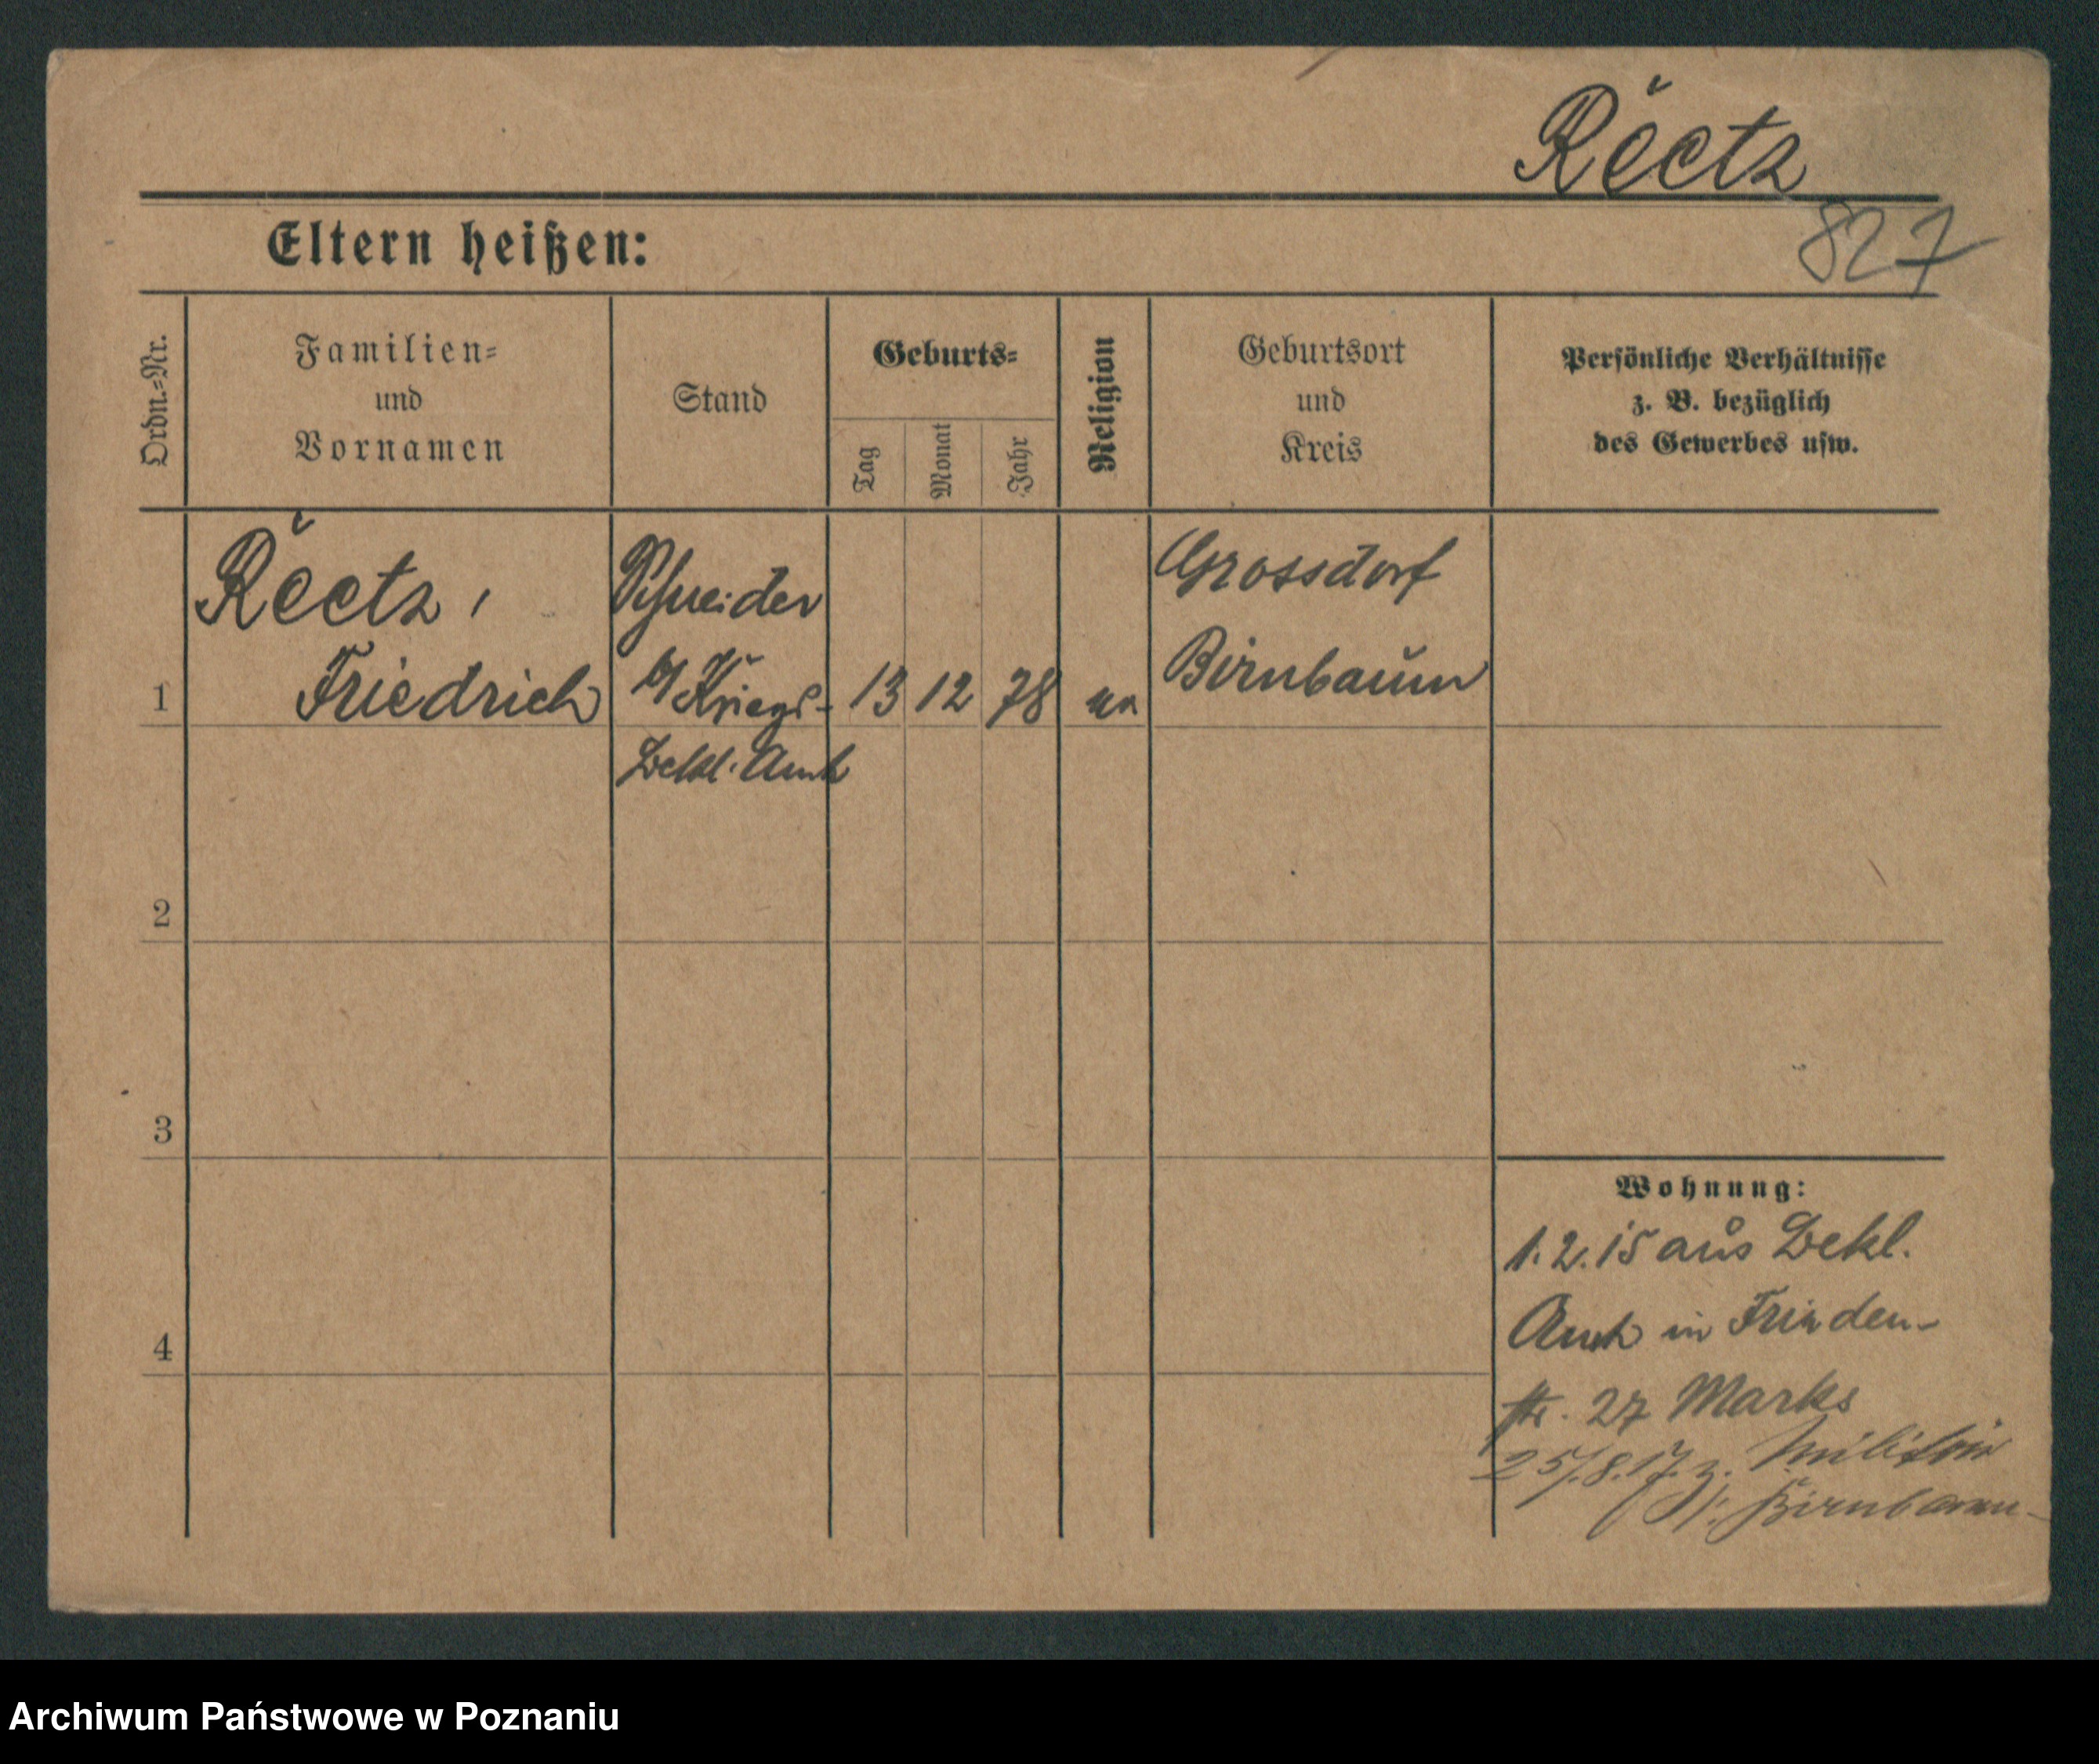 Reetz
827
Eltern heißen:
Ordn.-Nr.
Familien-
und
Vornamen
Stand
Geburts-
Tag
Monat
Jahr
Religion
Geburtsort
und
Kreis
Persönliche Verhältnisse
z. B. bezüglich
des Gewerbes usw.
1
Reetz,
Friedrich
Schneider
Kriegs-
Bekl. Amt
13
12
78
Grossdorf
Birnbaum
2
3
4
Wohnung:
1.2.15 aus Bekl.
Amt in Frieden-
str. 27 Marks
25/8.17. z. Militär
Birnbaum
Archiwum Państwowe w Poznaniu